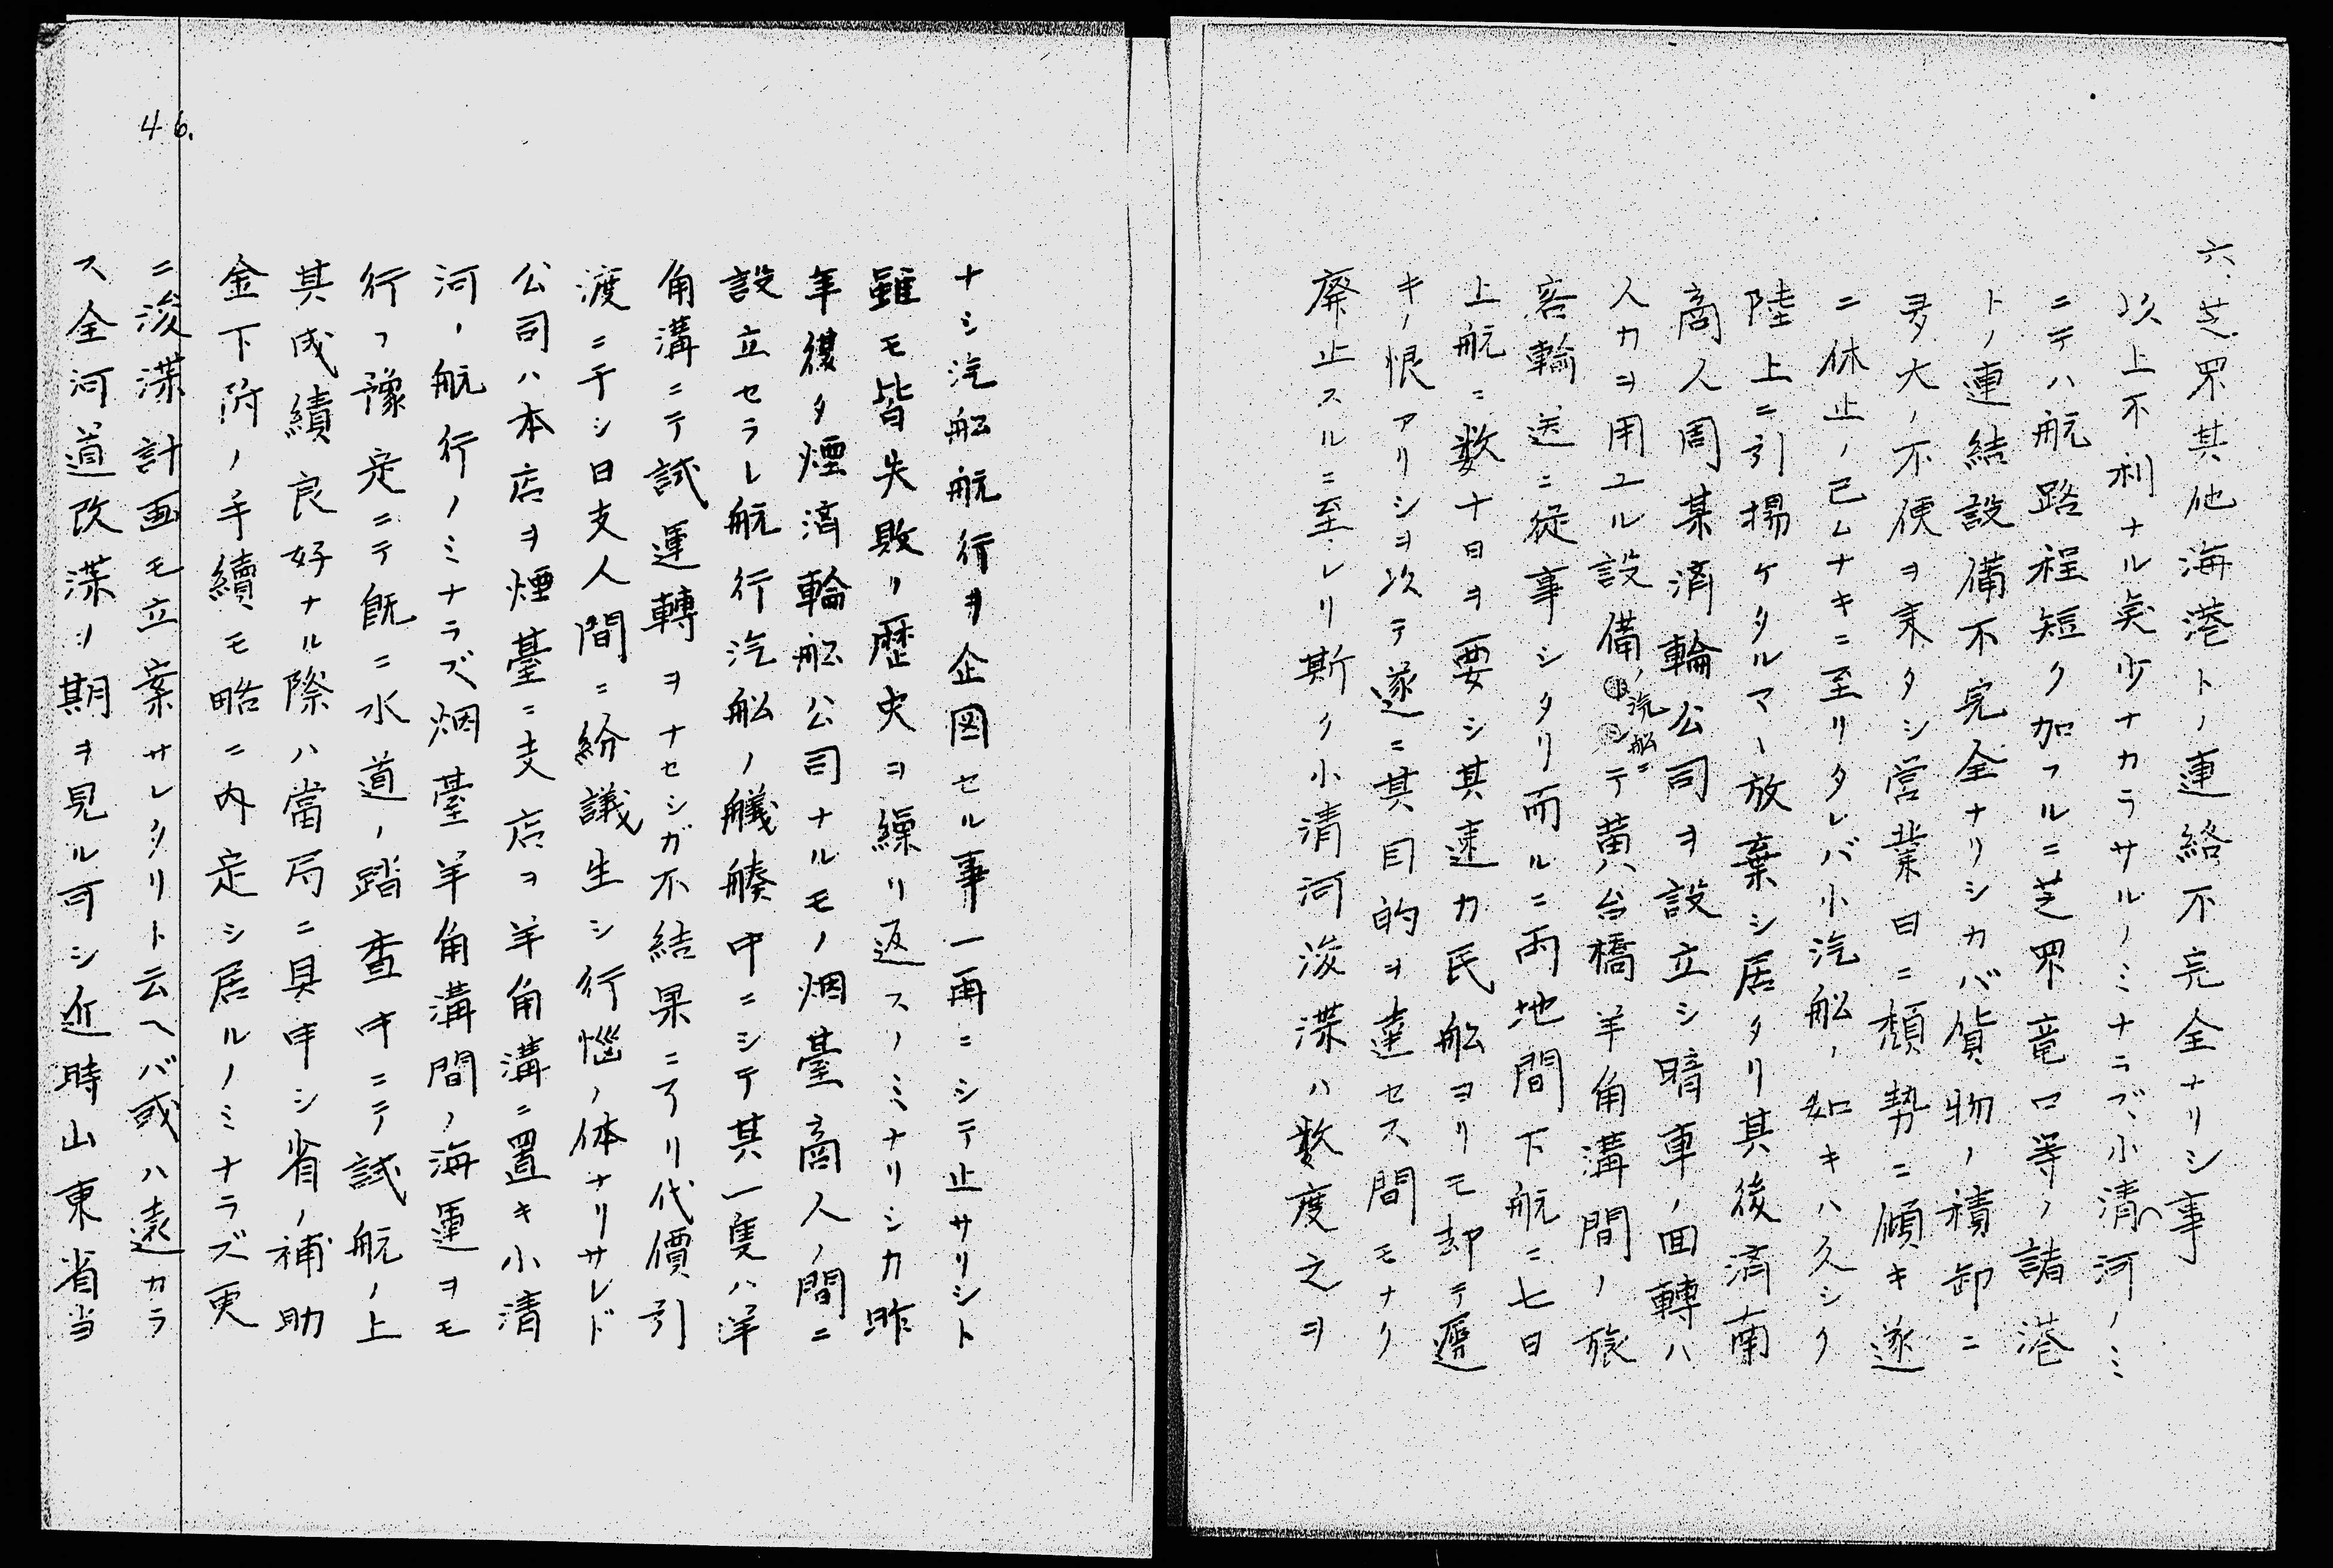 六、芝罘其他海港トノ連絡不完全ナリシ事
以上不利ナル矣少ナカラサルノミナラズ小清河ノミ
ニテハ航路程短ク加フルニ芝罘竜口等ノ諸港
トノ連結設備不完全ナリシカバ貨物ノ積卸ニ
多大ノ不便ヲ来タシ営業日ニ頽勢ニ傾キ遂
ニ休止ノ已ムナキニ至リタレバ小汽船ノ如キハ久シク
陸上ニ引揚ケタルマヽ放棄シ居タリ其後済南
商人周某済輪公司ヲ設立シ暗車ノ回轉ハ
人力ヲ用ユル設備ノ汽船ニテ黄台橋羊角溝間ノ旅
客輸送ニ従事シタリ而ルニ両地間下航ニ七日
上航ニ数十日ヲ要シ其速力民船ヨリモ却テ遅
キノ恨アリシヲ以テ遂ニ其目的ヲ達セス間モナク
廃止スルニ至レリ斯ク小清河浚渫ハ数度之ヲ
ナシ汽船航行ヲ企図セル事一再ニシテ止サリシト
雖モ皆失敗ノ歴史ヲ繰リ返スノミナリシカ昨
年復タ煙済輪船公司ナルモノ烟臺商人ノ間ニ
設立セラレ航行汽船ノ艤艤中ニシテ其一隻ハ羊
角溝ニテ試運轉ヲナセシガ不結果ニ了リ代價引
渡ニ干シ日支人間ニ紛議生シ行惱ノ体ナリサレド
公司ハ本店ヲ煙臺ニ支店ヲ羊角溝ニ置キ小清
河ノ航行ノミナラズ烟臺羊角溝間ノ海運ヲモ
行フ豫定ニテ既ニ水道ノ踏査中ニテ試航ノ上
其成績良好ナル際ハ當局ニ具申シ省ノ補助
金下附ノ手續モ略ニ内定シ居ルノミナラズ更
46.
ニ浚渫計画モ立案サレタリト云ヘバ或ハ遠カラ
ス全河道改渫ノ期ヲ見ル可シ近時山東省当